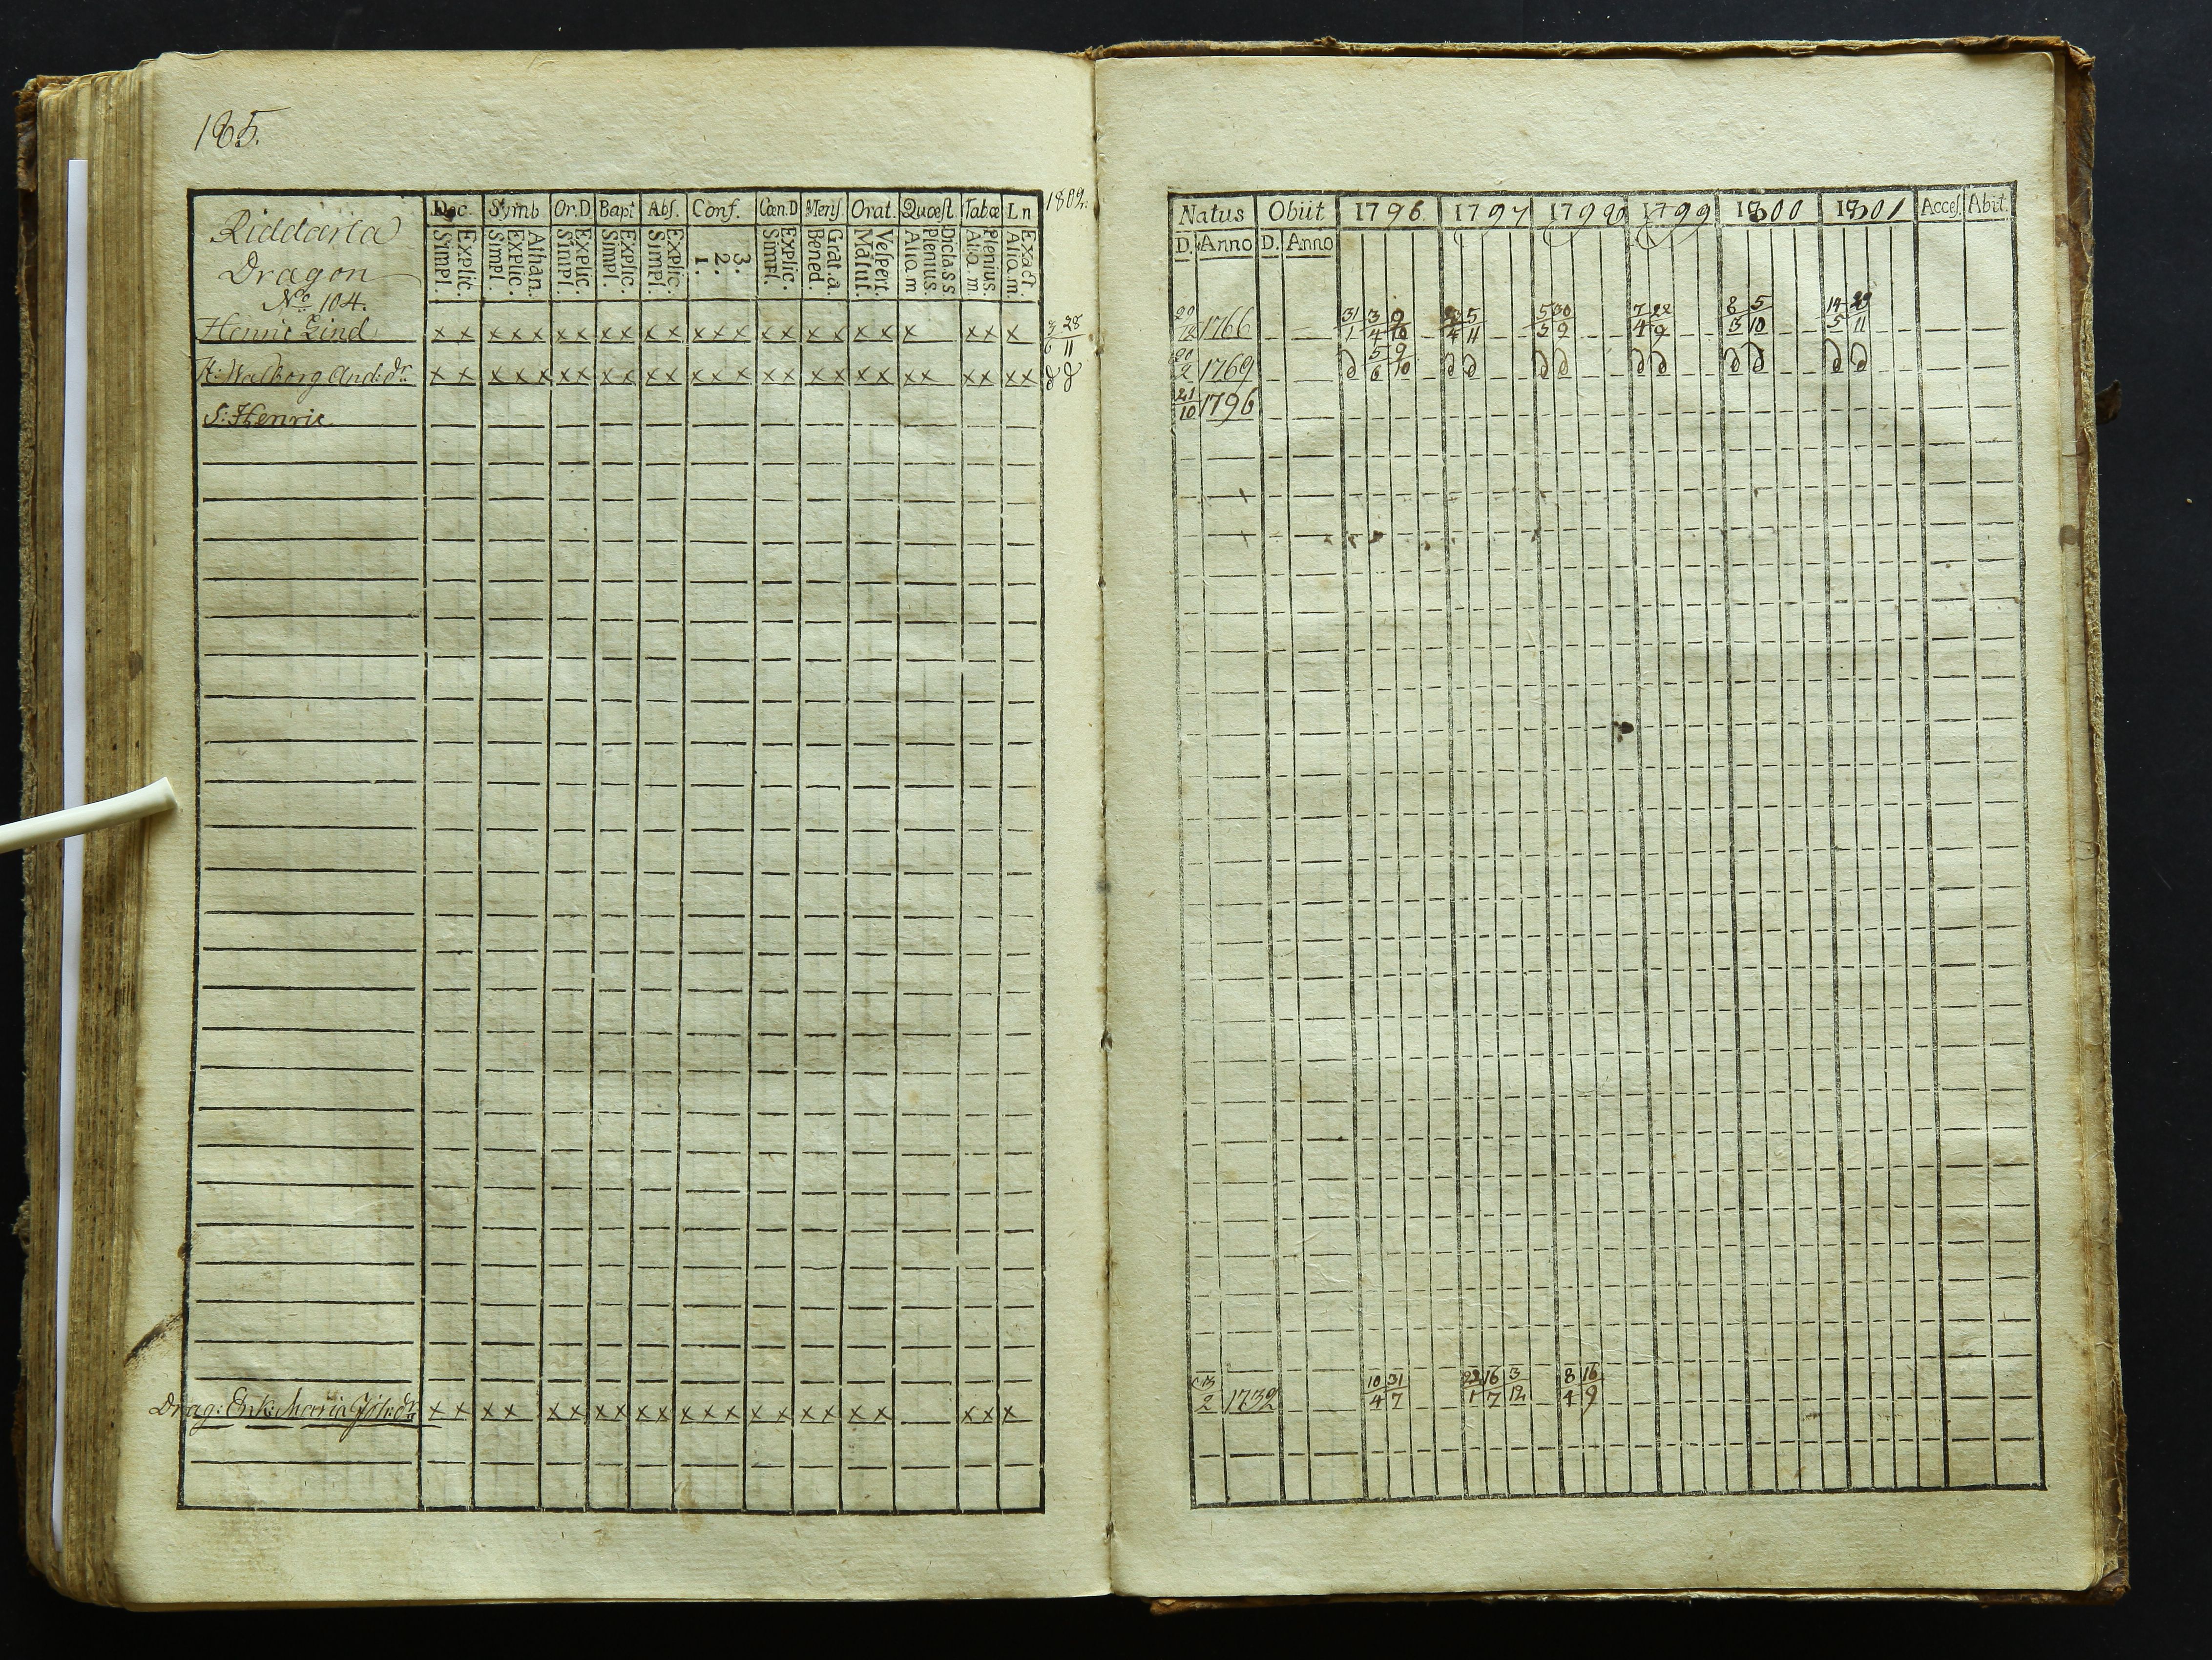 185.
Riddarla
Dragon
No 104.
Dec. Symb Or.D Bapt Abs. Conf. Cœn.D Mens Orat. Quœst Tabœ Ln 1802.
Simpl. Explic. Simpl. Explic. Athan. Simpl. Explic. Simpl. Explic. Simpl. Explic. 1. 2. 3. Simpl. Explic. Bened. Grat. a. Matut. Vespert. Alio. m Plenius. Dic. a. s. s. Alio. m. Plenius. Alio. m. Exact.
Henric Lind x x x x x x x x x x x x x x x x x x x x x x x 3/6 28/11
H: Walborg And: dr x x x x x x x x x x x x x x x x x x x x x x x x
S: Henric
Drag: Enk: Maria Joh: dr x x x x x x x x x x x x x x x x x x x x x
Natus Obiit 1796 1797 1798 1799 1800 1801 Acces. Abit.
D. Anno D. Anno
20/12 1766 31/1 3/4 9/10 5/11 5/5 30/9 7/4 22/9 8/3 5/10 14/5 29/11
20/2 1769 5/6 9/10
21/10 1796
2 1732 10/4 31/7 22/1 16/7 3/12 8/4 16/9